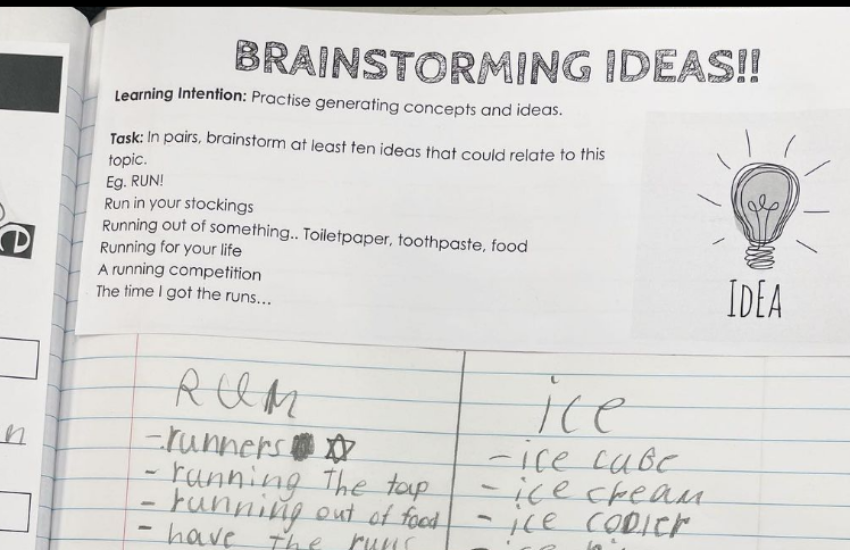 BRAINSTORMING IDEAS!!
Learning Intention: Practise generating concepts and ideas.
Task: In pairs, brainstorm at least ten ideas that could relate to this
topic.
Eg. RUN!
Run in your stockings
Running out of something.. Toiletpaper, toothpaste, food
Running for your life
A running competition
The time I got the runs...
IDEA
RUN
- runners
- running The tap
- running out of food
- have the runs
ice
- ice cube
- ice cream
- ice cooler
- ice
n